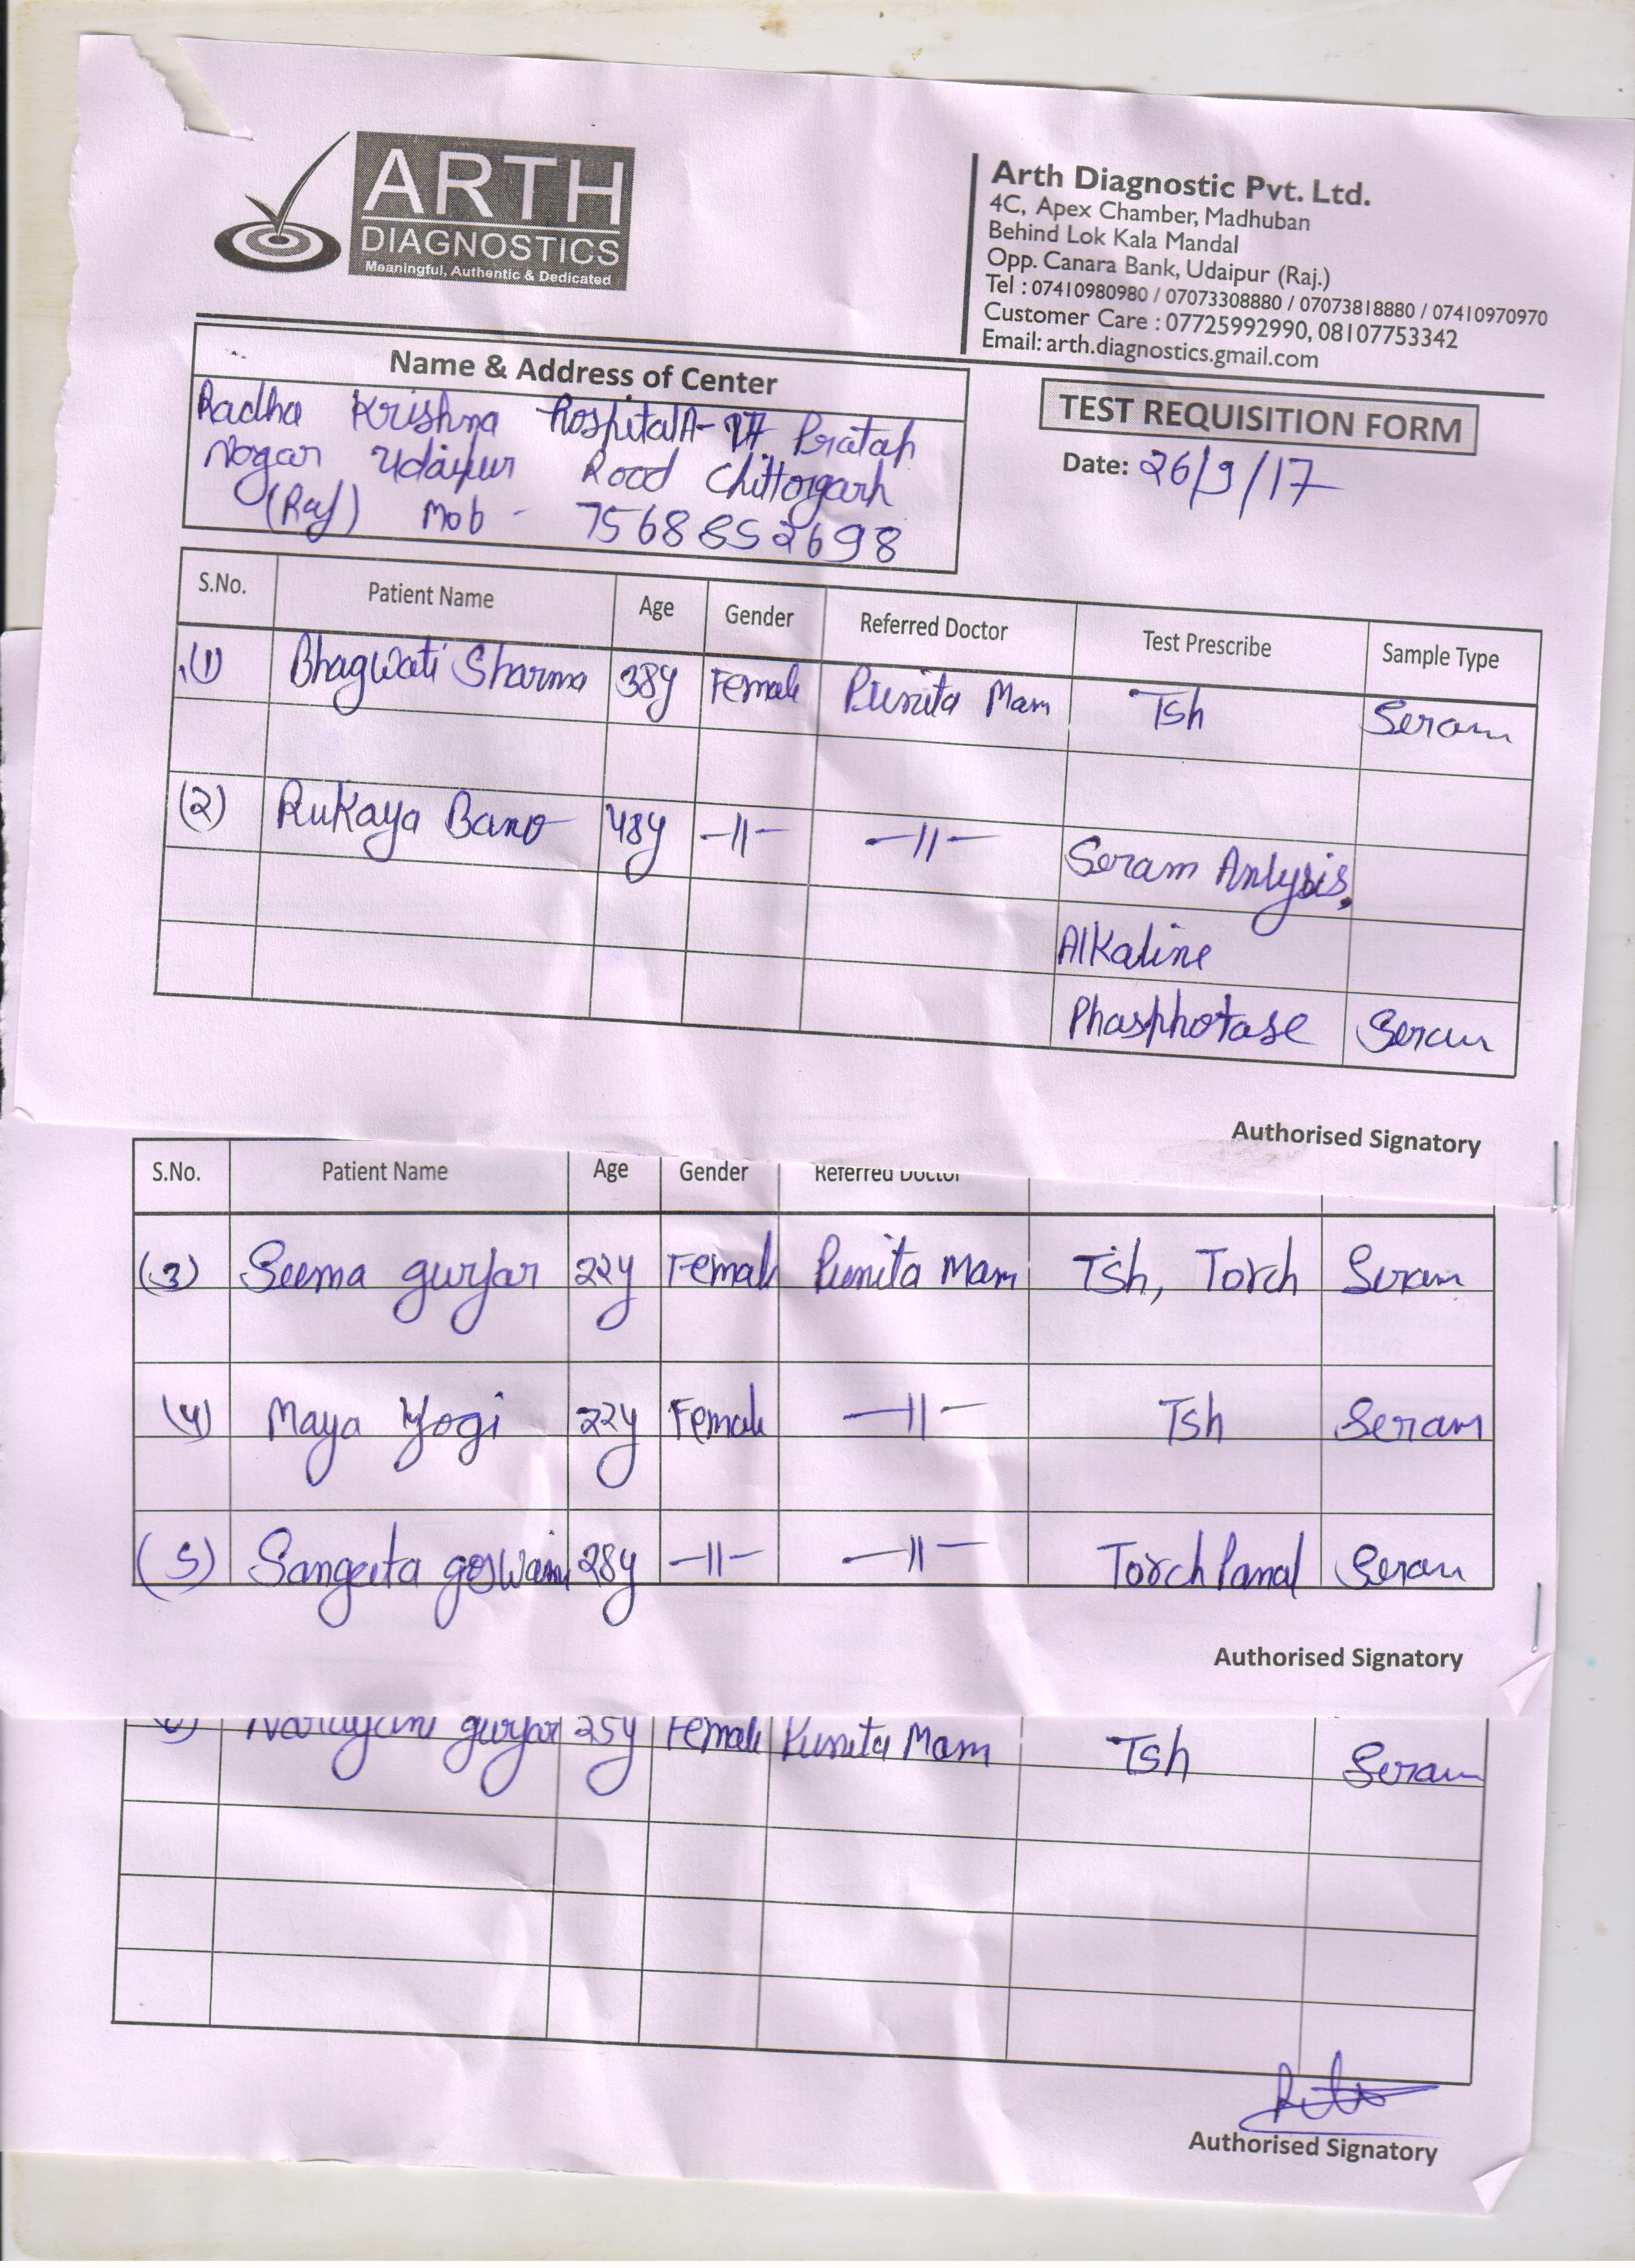 ARTH
DIAGNOSTICS
Meaningful, Authentic & Dedicated
Arth Diagnostic Pvt. Ltd.
4C, Apex Chamber, Madhuban
Behind Lok Kala Mandal
Opp. Canara Bank, Udaipur (Raj.)
Tel : 07410980980 / 07073308880 / 07073818880 / 07410970970
Customer Care : 07725992990, 08107753342
Email: arth.diagnostics.gmail.com
Name & Address of Center
Radha Krishna Hospital A- Pratap
Nagar Udaipur Road Chittorgarh
(Raj) Mob - 7568852698
TEST REQUISITION FORM
Date: 26/9/17
S.No. Patient Name Age Gender Referred Doctor Test Prescribe Sample Type
(1) Bhagwati Sharma 38y Female Punita Mam Tsh Seram
(2) Rukaya Bano 48y -11- -11- Seram Anlysis,
Alkaline
Phasphotase Seram
Authorised Signatory
S.No. Patient Name Age Gender Referred Doctor
(3) Seema gurjar 22y Female Punita Mam Tsh, Torch Seram
(4) Maya Yogi 22y Female -11- Tsh Seram
(5) Sangeeta goswami 28y -11- -11- Torch Panal Seram
Authorised Signatory
Narayani gurjar 25y Female Punita Mam Tsh Seram
Authorised Signatory